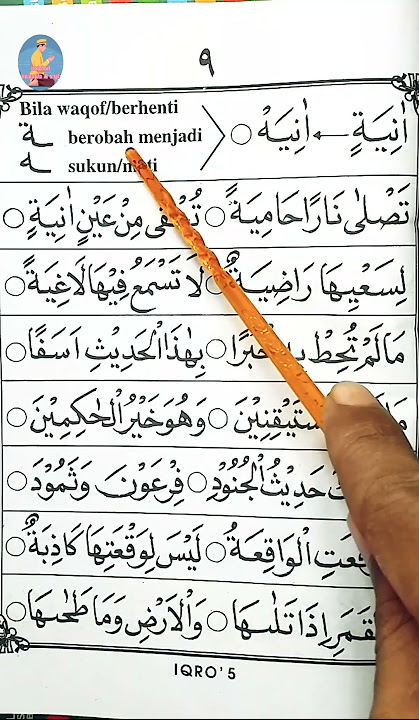 ٩
Bila waqof/berhenti
ـة berobah menjadi
ـه sukun/mati
اٰنِيَةٍ ← اٰنِيَهْ ○
تَصْلٰى نَارًا حَامِيَةً ○ مِنْ عَيْنٍ اٰنِيَةٍ ○
لِسَعْيِهَا رَاضِيَةٌ ○ لَا تَسْمَعُ فِيْهَا لَاغِيَةً ○
مَالَمْ تُحِطْ خُبْرًا ○ بِهٰذَا الْحَدِيْثِ اَسَفًا ○
وَهُوَ خَيْرُ الْحٰكِمِيْنَ ○
حَدِيْثُ الْجُنُوْدِ ○ فِرْعَوْنَ وَثَمُوْدَ ○
الْوَاقِعَةُ ○ لَيْسَ لِوَقْعَتِهَا كَاذِبَةٌ ○
اِذَا تَلٰىهَا ○ وَالْاَرْضِ وَمَا طَحٰىهَا ○
IQRO' 5